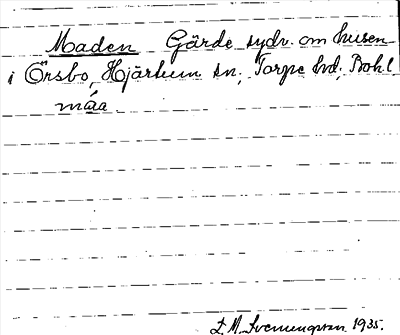 Maden Gärde sydv. om husen
i Örsbo, Hjärtum sn, Torpe hd, Bohl
måa
S. M. Svenungsson 1935.